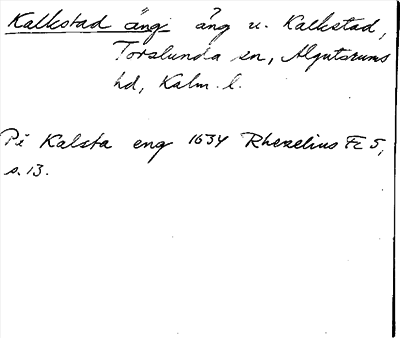 Kalkstad ängi äng u. Kalkstad,
Torslunda sn, Algutsrums
hd, Kalm. l.
På Kalsta eng 1634 Rhezelius Fc 5,
s. 13.